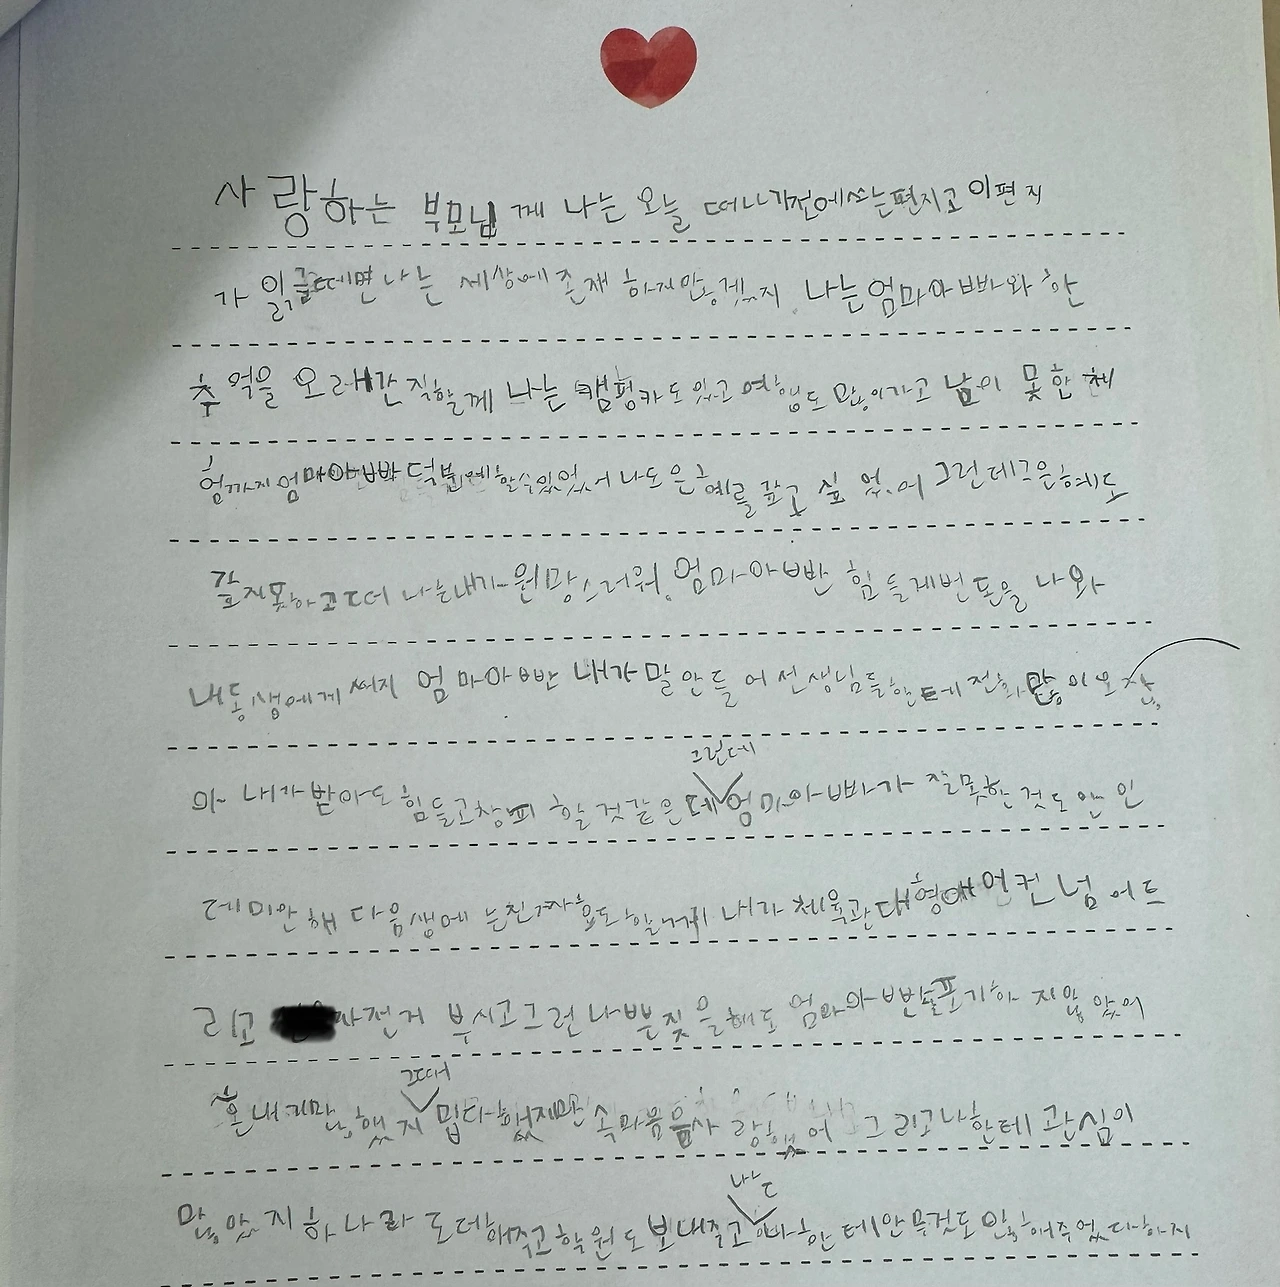 사랑하는 부모님께 나는 오늘 떠나기전에쓰는편지고 이편지
가 읽글때면 나는 세상에 존재 하지안겠지. 나는엄마아빠와 한
추억을 오래간직할께 나는 캠핑카도있고 여행도 많이가고 남이 못한 체
험까지 엄마아빠 덕분에할수있었어 나도 은혜를 갚고 싶었어 그런데그은혜도
갚지못하고떠나는내가 원망스러워. 엄마아빤 힘들게번 돈을 나와
내동생에게 써지 엄마아빤 내가 말안들어 선생님들한테 전화 많이 오잖
아 내가받아도 힘들고창피 할것같은데 그런데 엄마아빠가 잘못한것도 안인
데미안해 다음생에는진짜효도할께 내가 체육관대형에어컨 넘어트
리고 자전거 부시고그런 나쁜짓을해도 엄마아빤날포기하지않았어
혼내기만했지 그때 밉다했지만 속마음은사랑했어 그리고나한테 관심이
많았지 하나라도더해주고학원도보내주고 나는 한테안무것도 안해주었다하지